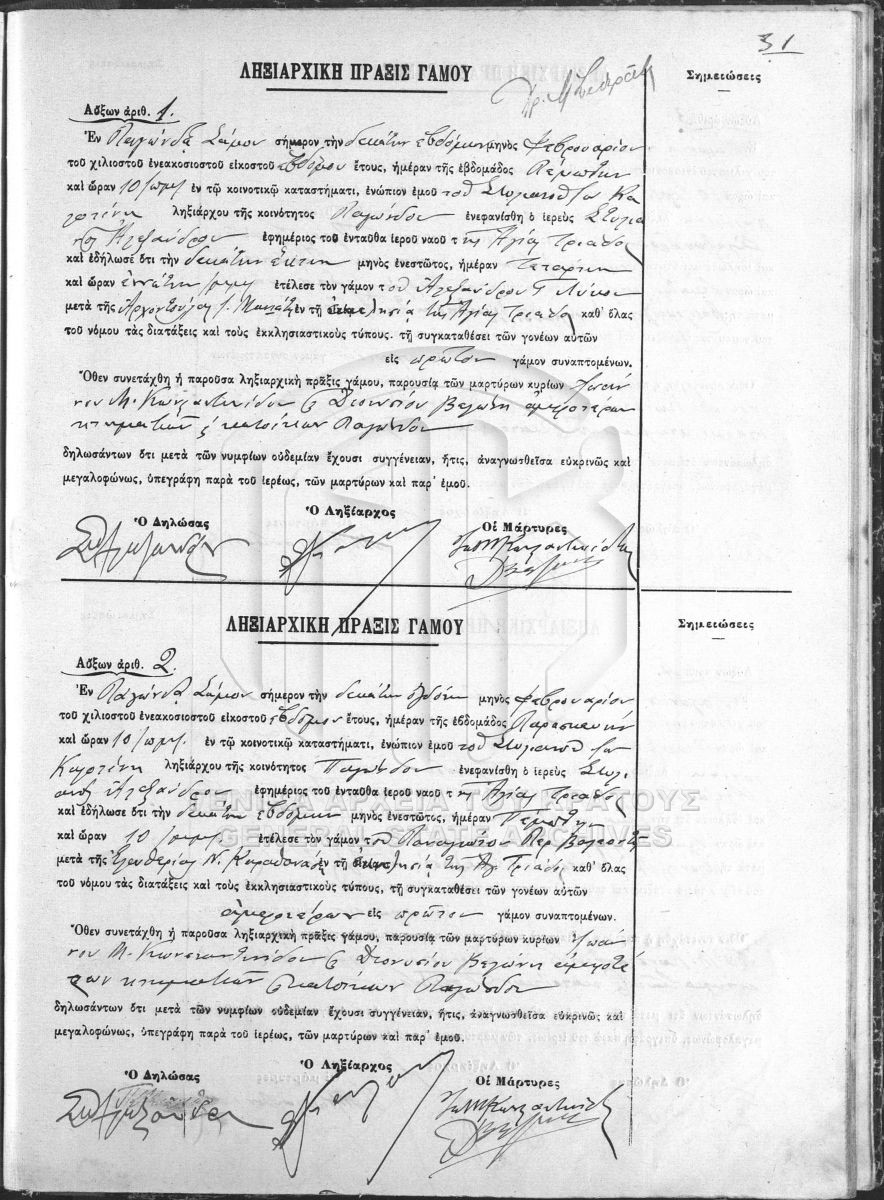 31
ΛΗΞΙΑΡΧΙΚΗ ΠΡΑΞΙΣ ΓΑΜΟΥ
Σημειώσεις
Αὔξων ἀριθ. 1.
Ἐν Παγώνδᾳ Σάμου σήμερον τὴν δεκάτην ἑβδόμην μηνὸς Φεβρουαρίου
τοῦ χιλιοστοῦ ἐνεακοσιοστοῦ εἰκοστοῦ ἑβδόμου ἔτους, ἡμέραν τῆς ἑβδομάδος Πέμπτην
καὶ ὥραν 10 π.μ. ἐν τῷ κοινοτικῷ καταστήματι, ἐνώπιον ἐμοῦ τοῦ
ληξιάρχου τῆς κοινότητος Παγώνδου ἐνεφανίσθη ὁ ἱερεὺς Στυλια
νὸς Ἀλεξάνδρου ἐφημέριος τοῦ ἐνταῦθα ἱεροῦ ναοῦ τ ῆς Ἁγίας Τριάδος
καὶ ἐδήλωσε ὅτι τὴν δεκάτην ἕκτην μηνὸς ἐνεστῶτος, ἡμέραν Τετάρτην
καὶ ὥραν ἐννάτην μ.μ. ἐτέλεσε τὸν γάμον τοῦ Ἀλεξάνδρου
μετὰ τῆς ἐν τῇ ἐκκλησίᾳ τῆς Ἁγίας Τριάδος καθ' ὅλας
τοῦ νόμου τὰς διατάξεις καὶ τοὺς ἐκκλησιαστικοὺς τύπους. τῇ συγκαταθέσει τῶν γονέων αὐτῶν
εἰς πρῶτον γάμον συναπτομένων.
Ὅθεν συνετάχθη ἡ παροῦσα ληξιαρχικὴ πρᾶξις γάμου, παρουσίᾳ τῶν μαρτύρων κυρίων Ἰωάν
νου Μ. Κωνσταντινίδου καὶ Διονυσίου Βελώνη ἀμφοτέρων
κτηματιῶν κατοίκων Παγώνδου
δηλωσάντων ὅτι μετὰ τῶν νυμφίων οὐδεμίαν ἔχουσι συγγένειαν, ἥτις, ἀναγνωσθεῖσα εὐκρινῶς καὶ
μεγαλοφώνως, ὑπεγράφη παρὰ τοῦ ἱερέως, τῶν μαρτύρων καὶ παρ' ἐμοῦ.
Ὁ Δηλώσας
Ὁ Ληξίαρχος
Οἱ Μάρτυρες
ΛΗΞΙΑΡΧΙΚΗ ΠΡΑΞΙΣ ΓΑΜΟΥ
Σημειώσεις
Αὔξων ἀριθ. 2.
Ἐν Παγώνδᾳ Σάμου σήμερον τὴν δεκάτην ὀγδόην μηνὸς Φεβρουαρίου
τοῦ χιλιοστοῦ ἐνεακοσιοστοῦ εἰκοστοῦ ἑβδόμου ἔτους, ἡμέραν τῆς ἑβδομάδος Παρασκευὴν
καὶ ὥραν 10 π.μ. ἐν τῷ κοινοτικῷ καταστήματι, ἐνώπιον ἐμοῦ τοῦ
ληξιάρχου τῆς κοινότητος Παγώνδου ἐνεφανίσθη ὁ ἱερεὺς Στυλι
ανὸς Ἀλεξάνδρου ἐφημέριος τοῦ ἐνταῦθα ἱεροῦ ναοῦ τ ῆς Ἁγίας Τριάδος
ΓΕΝΙΚΑ ΑΡΧΕΙΑ ΤΟΥ ΚΡΑΤΟΥΣ
καὶ ἐδήλωσε ὅτι τὴν δεκάτην ἑβδόμην μηνὸς ἐνεστῶτος, ἡμέραν Πέμπτην
GENERAL STATE ARCHIVES
καὶ ὥραν 10 μ.μ. ἐτέλεσε τὸν γάμον τοῦ Παναγιώτου
μετὰ τῆς Ἐλευθερίας Ν. ἐν τῇ ἐκκλησίᾳ τῆς Ἁγ. Τριάδος καθ' ὅλας
τοῦ νόμου τὰς διατάξεις καὶ τοὺς ἐκκλησιαστικοὺς τύπους, τῇ συγκαταθέσει τῶν γονέων αὐτῶν
ἀμφοτέρων εἰς πρῶτον γάμον συναπτομένων.
Ὅθεν συνετάχθη ἡ παροῦσα ληξιαρχικὴ πρᾶξις γάμου, παρουσίᾳ τῶν μαρτύρων κυρίων Ἰωάν
νου Μ. Κωνσταντινίδου καὶ Διονυσίου Βελώνη ἀμφοτέ
ρων κτηματιῶν κατοίκων Παγώνδου
δηλωσάντων ὅτι μετὰ τῶν νυμφίων οὐδεμίαν ἔχουσι συγγένειαν, ἥτις, ἀναγνωσθεῖσα εὐκρινῶς καὶ
μεγαλοφώνως, ὑπεγράφη παρὰ τοῦ ἱερέως, τῶν μαρτύρων καὶ παρ' ἐμοῦ.
Ὁ Δηλώσας
Ὁ Ληξίαρχος
Οἱ Μάρτυρες